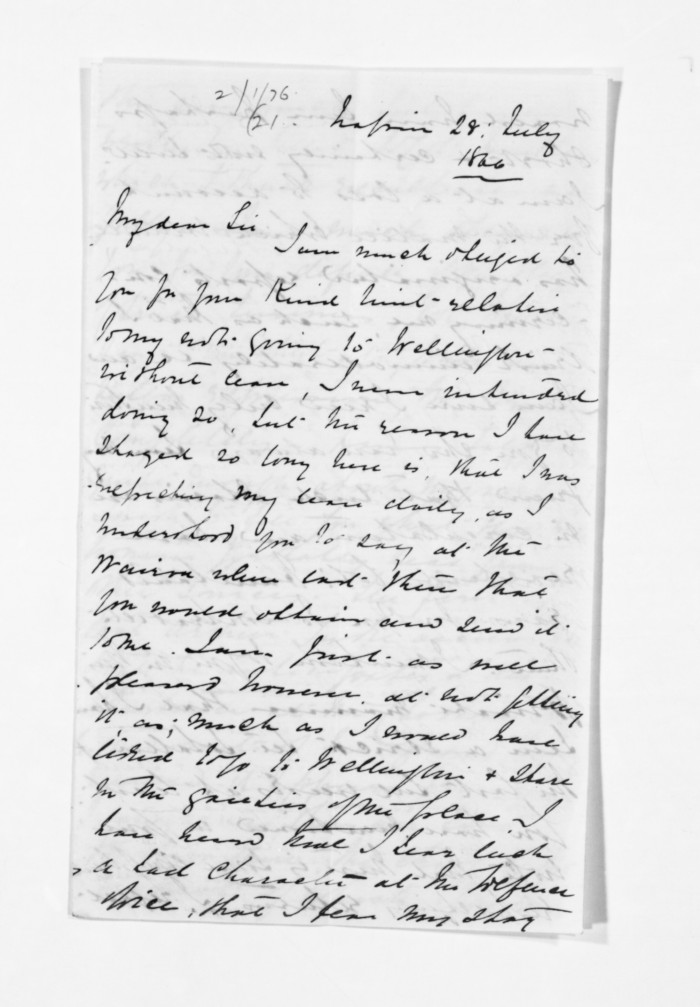 2/1/76
/21.
Napier 28: July
1866
My dear Sir
I am much obliged to
you for your kind hint relative
to my not going to Wellington
without leave, I never intended
doing so, but the reason I have
stayed so long here is, that I was
expecting my leave daily, as I
understood you to say at the
Wairoa when last there that
you would obtain and send it
to me. I am just as well
pleased however, at not getting
it, as; much as I would have
liked to go to Wellington & share
in the gaieties of the place I
have heard that I bear such
a bad character at the Defence
Office, that I fear my stay